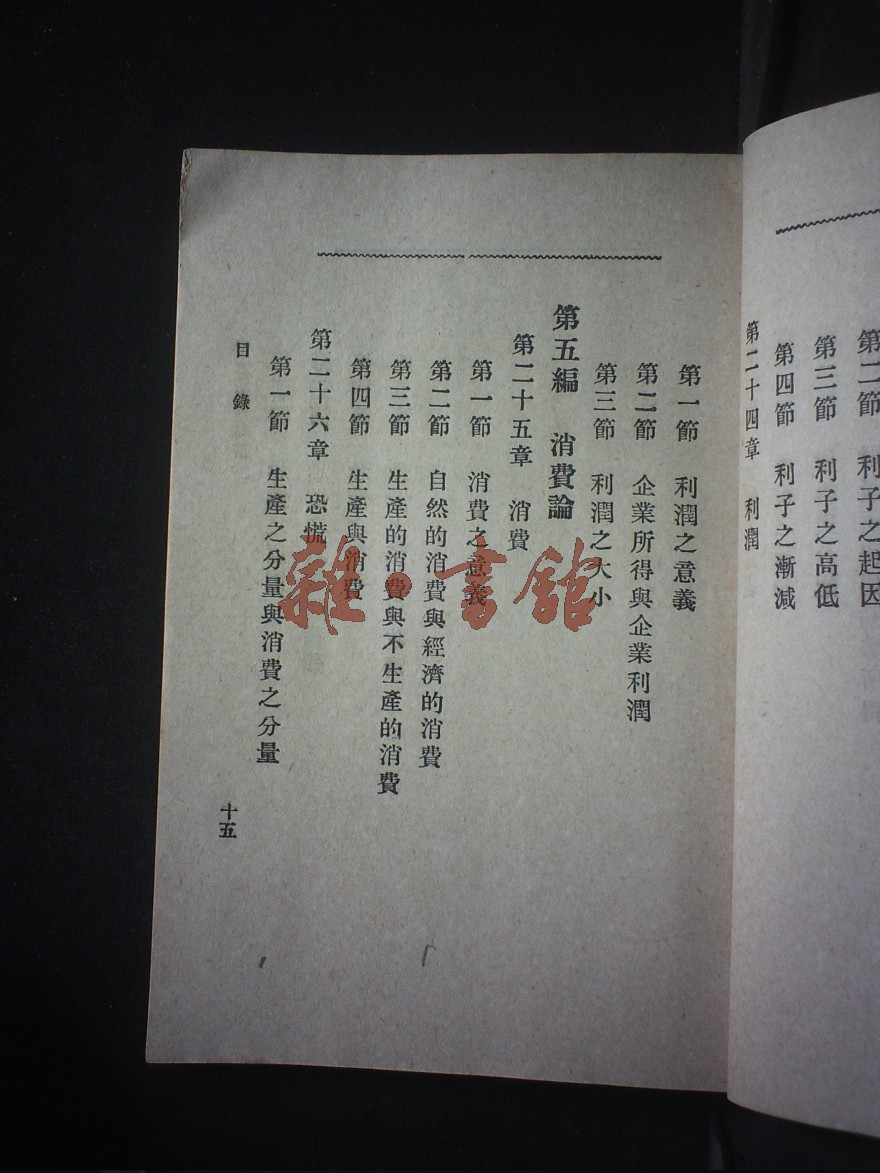 第二節　利子之起因
第三節　利子之高低
第四節　利子之漸減
第二十四章　利潤
第一節　利潤之意義
第二節　企業所得與企業利潤
第三節　利潤之大小
第五編　消費論
第二十五章　消費
第一節　消費之意義
第二節　自然的消費與經濟的消費
第三節　生產的消費與不生產的消費
第四節　生產與消費
第二十六章　恐慌
第一節　生產之分量與消費之分量
目錄
十五
雜·書館